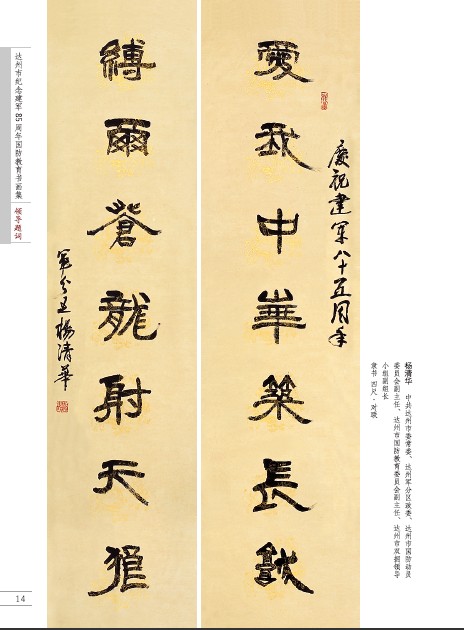 达州市纪念建军85周年国防教育书画集
领导题词
慶祝建军八十五周年
愛我中華築長城
縛爾蒼龍射天狼
军分区楊清華
杨清华 中共达州市委常委、达州军分区政委、达州市国防动员
委员会副主任、达州市国防教育委员会副主任、达州市双拥领导
小组副组长
隶书 四尺·对联
14